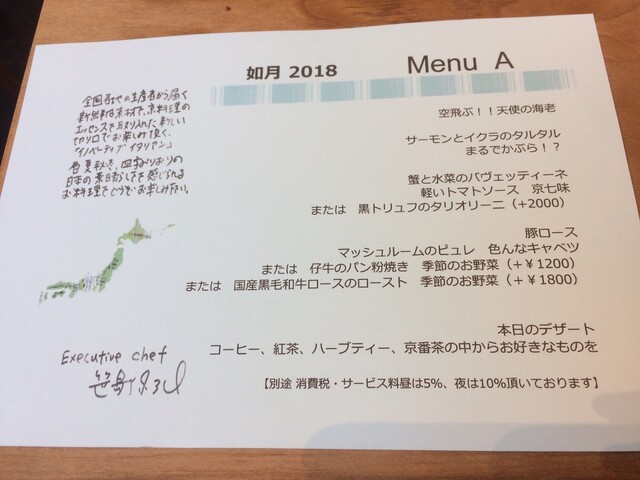 如月 2018
Menu A
全国各地の生産者から届く
新鮮な素材で、京料理の
エッセンスを取り入れた新しい
切り口でお楽しみ頂く、
「イノベーティブイタリアン」
春夏秋冬、四季おりおりの
日本の素晴らしさを感じられる
お料理をどうぞお楽しみ下さい。
空飛ぶ！！天使の海老
サーモンとイクラのタルタル
まるでかぶら！？
蟹と水菜のバヴェッティーネ
軽いトマトソース 京七味
または 黒トリュフのタリオリーニ（+2000）
豚ロース
マッシュルームのピュレ 色んなキャベツ
または 仔牛のパン粉焼き 季節のお野菜（+￥1200）
または 国産黒毛和牛ロースのロースト 季節のお野菜（+￥1800）
本日のデザート
コーヒー、紅茶、ハーブティー、京番茶の中からお好きなものを
【別途 消費税・サービス料昼は5%、夜は10%頂いております】
Executive chef